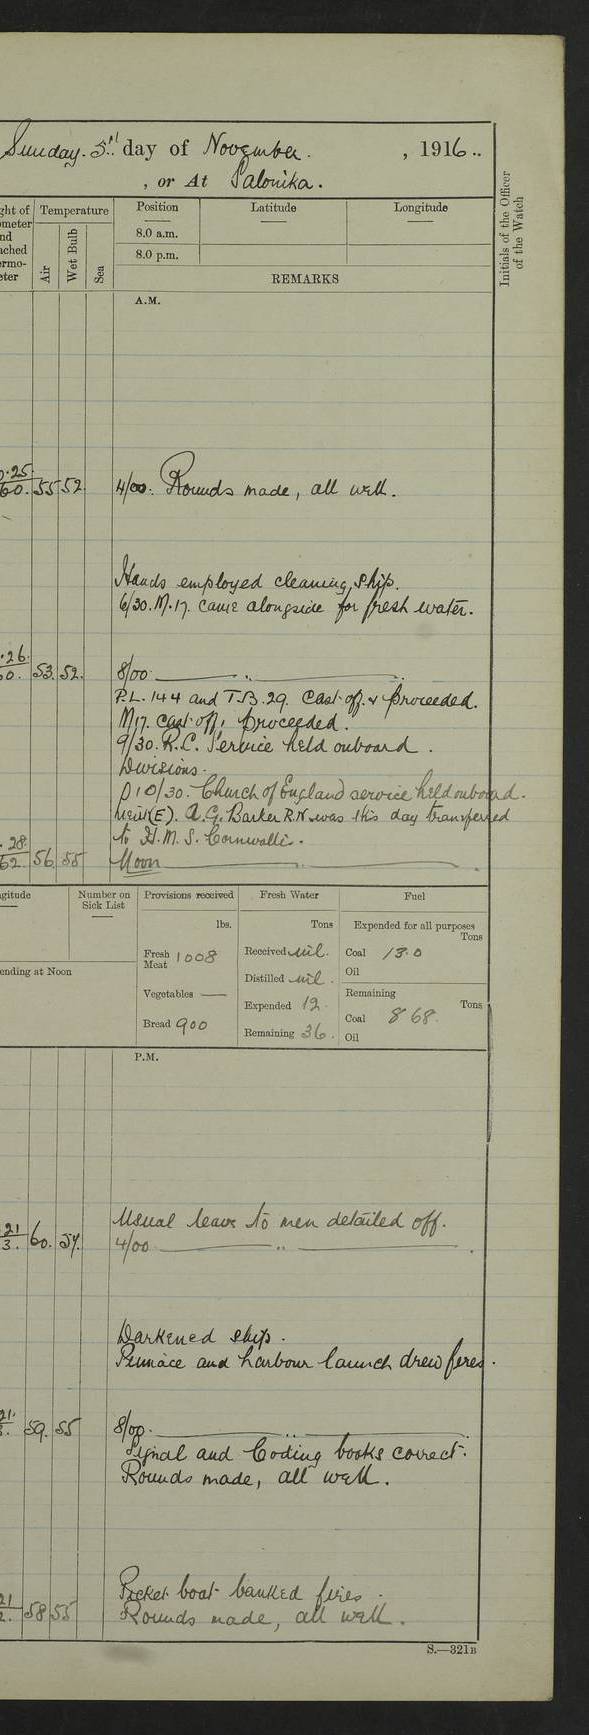 Sunday. 5th day of November. , 1916..
, or At Salonika.
Initials of the Officer
of the Watch
ght of
ometer
nd
ached
ermo-
eter
Temperature
Air
Wet Bulb
Sea
Position
Latitude
Longitude
8.0 a.m.
8.0 p.m.
REMARKS
A.M.
0.25
60. 55 52. 4/00. Rounds made, all well.
Hands employed cleaning ship.
6/30. M.17. came alongside for fresh water.
.26
0. 53. 52. 8/00 "
P.L. 144 and T.B. 29. Cast off & Proceeded.
M17. cast off, Proceeded.
9/30. R.C. Service held onboard.
Divisions.
10/30. Church of England service held onboard.
Lieut (E). A.G. Barker R.N was this day transferred
to H.M.S. Cornwallis.
.28
62 56. 55 Noon
gitude
Number on
Sick List
ending at Noon
Provisions received
lbs.
Fresh Meat 1008
Vegetables —
Bread 900
Fresh Water
Tons
Received nil.
Distilled nil.
Expended 12.
Remaining 36.
Fuel
Expended for all purposes
Tons
Coal 13.0
Oil
Remaining
Tons
Coal 868.
Oil
P.M.
Usual leave to men detailed off.
21
3. 60. 57. 4/00 "
Darkened ship.
Pinnace and harbour launch drew fires.
21.
59. 55 8/00. "
Signal and Coding books correct.
Rounds made, all well.
Picket boat banked fires.
21
2. 58 55 Rounds made, all well.
S.—321B